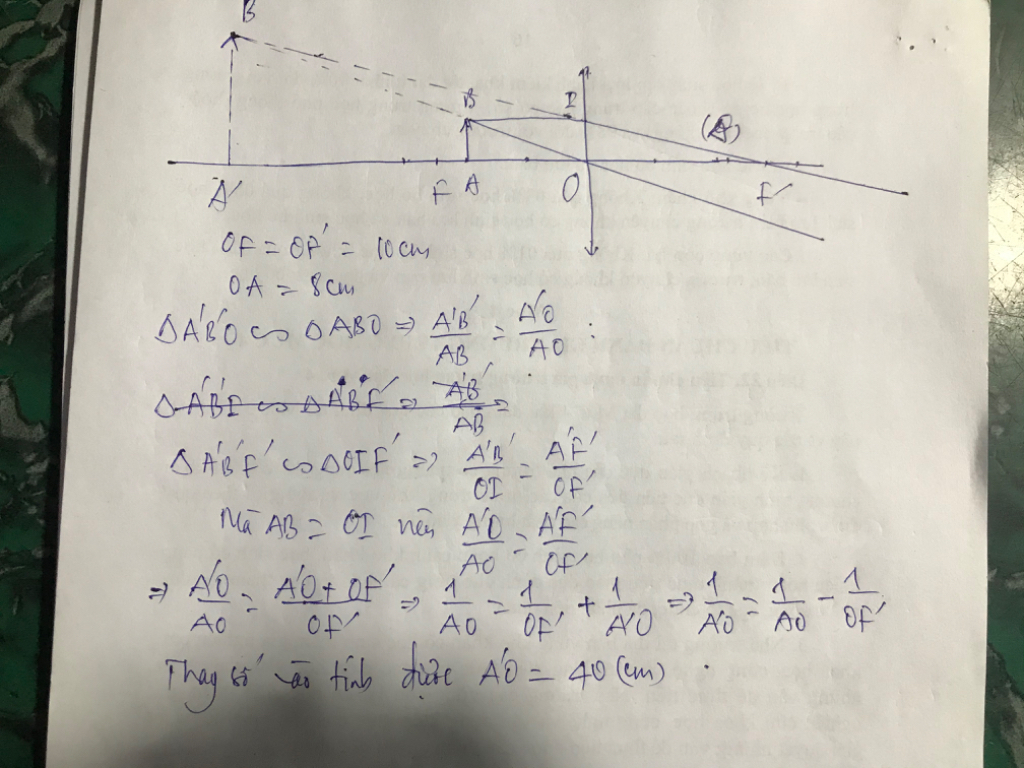 B'
B I
A' F A O F'
OF = OF' = 10cm
OA = 8cm
ΔA'B'O ∽ ΔABO ⇒ A'B'/AB = A'O/AO
ΔA'B'F' ∽ ΔOIF' ⇒ A'B'/OI = A'F'/OF'
Mà AB = OI nên A'O/AO = A'F'/OF'
⇒ A'O/AO = A'O + OF'/OF' ⇒ 1/AO = 1/OF' + 1/A'O ⇒ 1/A'O = 1/AO - 1/OF'
Thay số vào tính được A'O = 40 (cm).